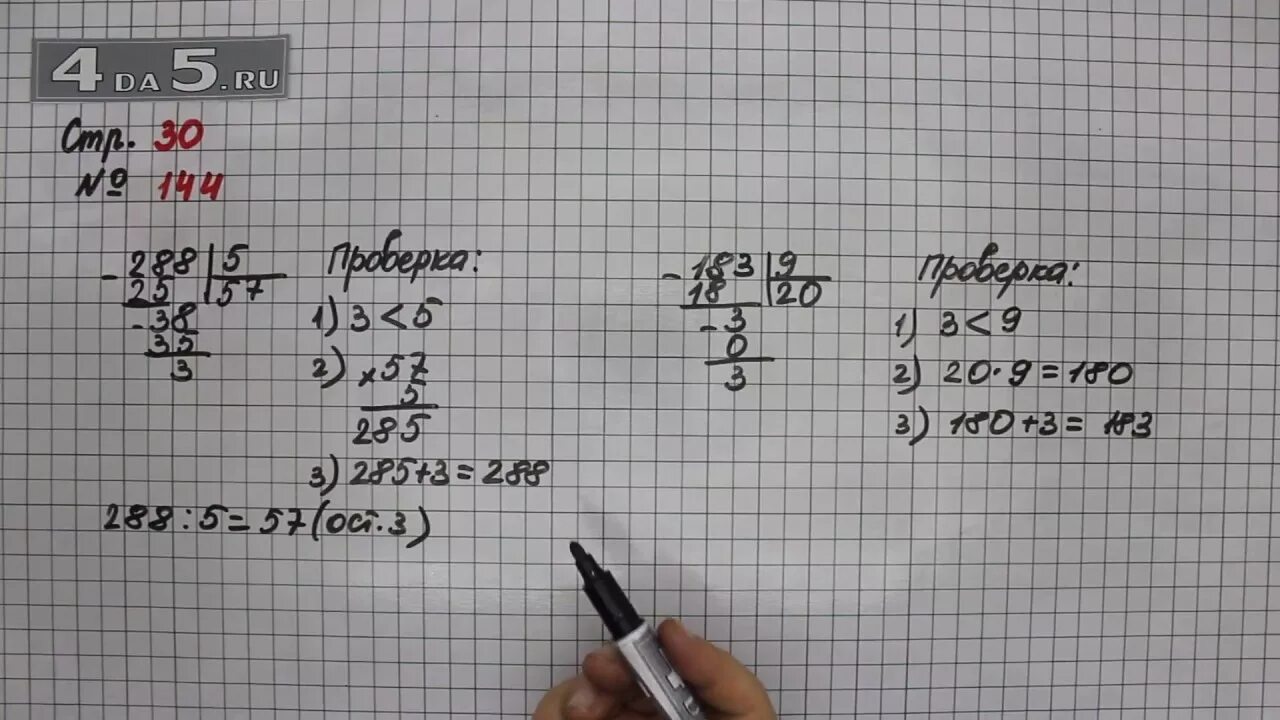 4DA5.RU
Стр. 30
№ 144
- 288 | 5
25 | 57
- 38
35
3
Проверка:
1) 3 < 5
2) × 57
5
285
3) 285+3=288
288:5=57(ост.3)
- 183 | 9
18 | 20
- 3
0
3
Проверка:
1) 3 < 9
2) 20·9=180
3) 180+3=183